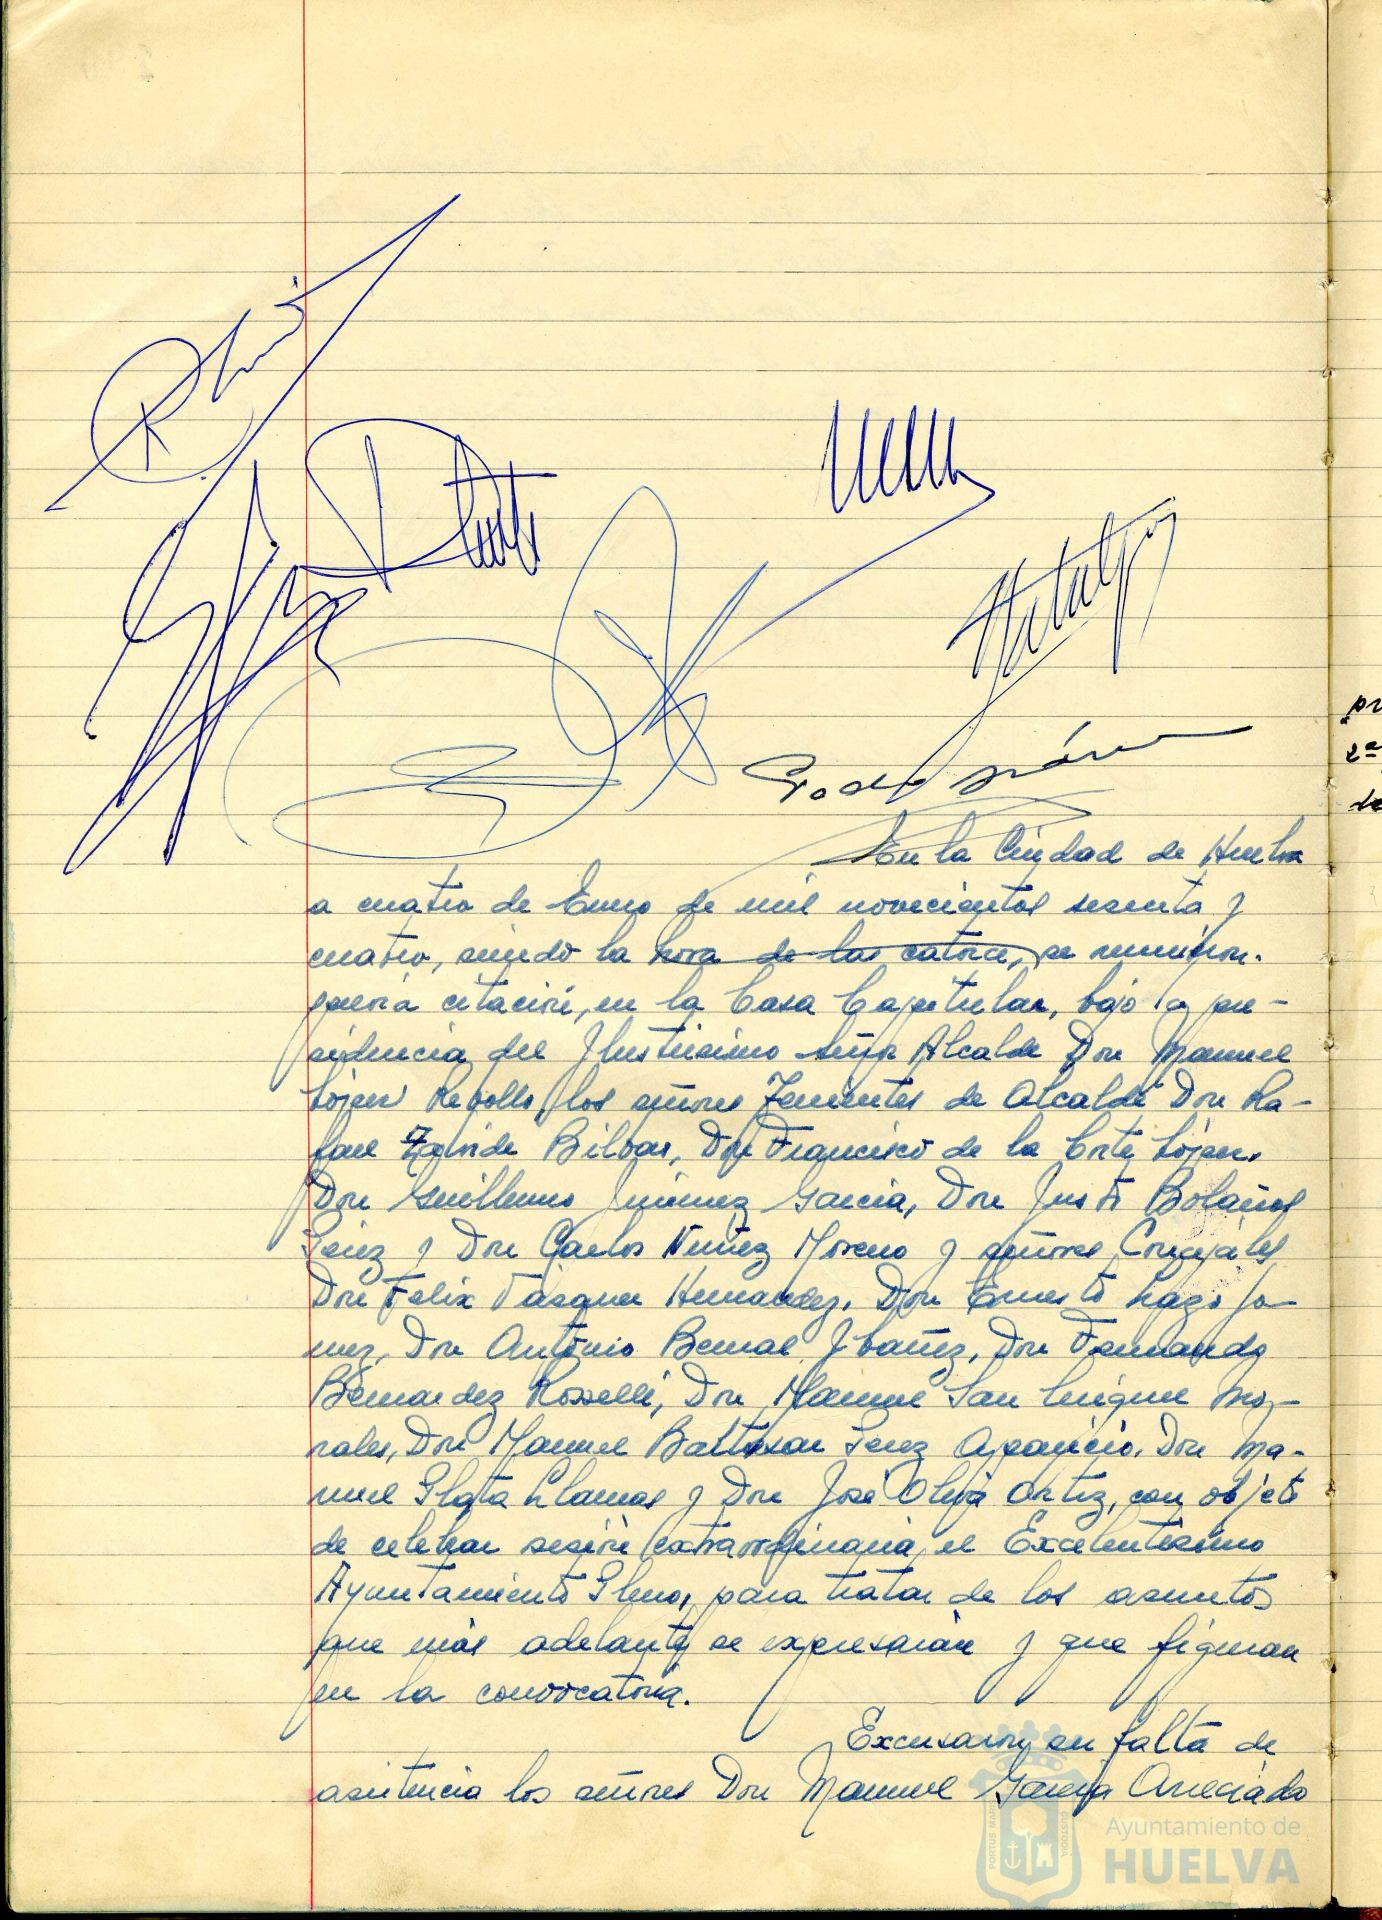 En la Ciudad de Huelva
a cuatro de Enero de mil novecientos sesenta y
cuatro, siendo la hora de las catorce, se reunieron.
previa citación, en la Casa Capitular, bajo la pre-
sidencia del Ilustrisimo señor Alcalde Don Manuel
López Rebollo, los señores Tenientes de Alcalde Don Ra-
fael Bilbao, Don Francisco de la Corte López,
Don Guillermo Jimenez Garcia, Don Justo Bolaños
Perez y Don Carlos Nuñez Moreno y señores Concejales
Don Felix Vazquez Hernandez, Don Ernesto Lazo Jo-
Don Antonio Bernal Ibañez, Don Fernando
Bernardez Rosselli, Don Manuel San Miguel Mo-
rales, Don Manuel Baltasar Perez Aparicio, Don Ma-
nuel Plata Llamas y Don José Oliva Ortiz, con objeto
de celebrar sesión extraordinaria el Excelentisimo
Ayuntamiento Pleno, para tratar de los asuntos
que más adelante se expresarán y que figuran
en la convocatoria.
Excusaron su falta de
asistencia los señores Don Manuel Garcia
pr
2ª
de
PORTUS MARIS
CUSTODIA
Ayuntamiento de
HUELVA